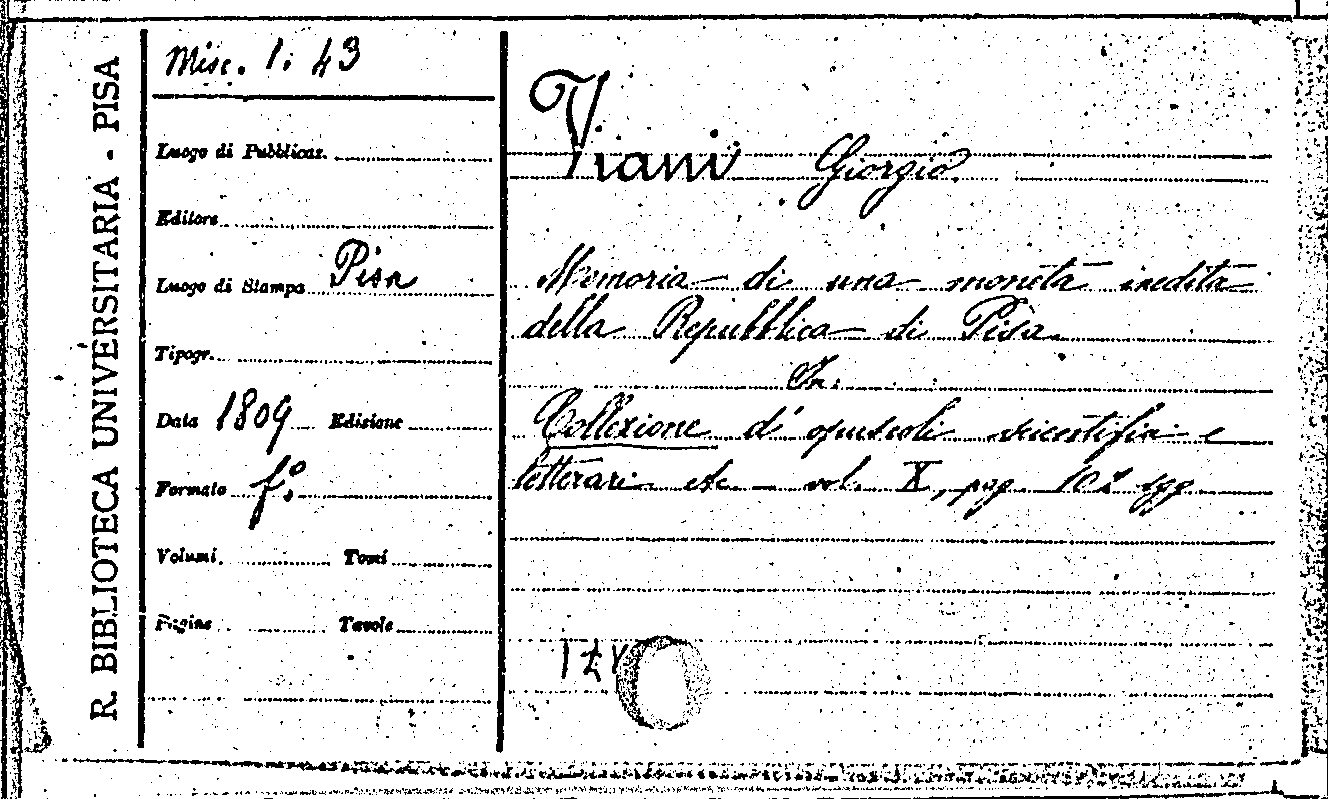 R. BIBLIOTECA UNIVERSITARIA - PISA
Misc. 1. 43
Luogo di Pubblicaz.
Editore
Luogo di Stampa Pisa
Tipogr.
Data 1809 Edizione
Formato f.º
Volumi. Tomi
Pagine Tavole
Viani Giorgio.
Memoria di una moneta inedita
della Repubblica di Pisa.
In:
Collezione d' opuscoli scientifici e
letterari etc. - vol. X, pag. 102 sgg.